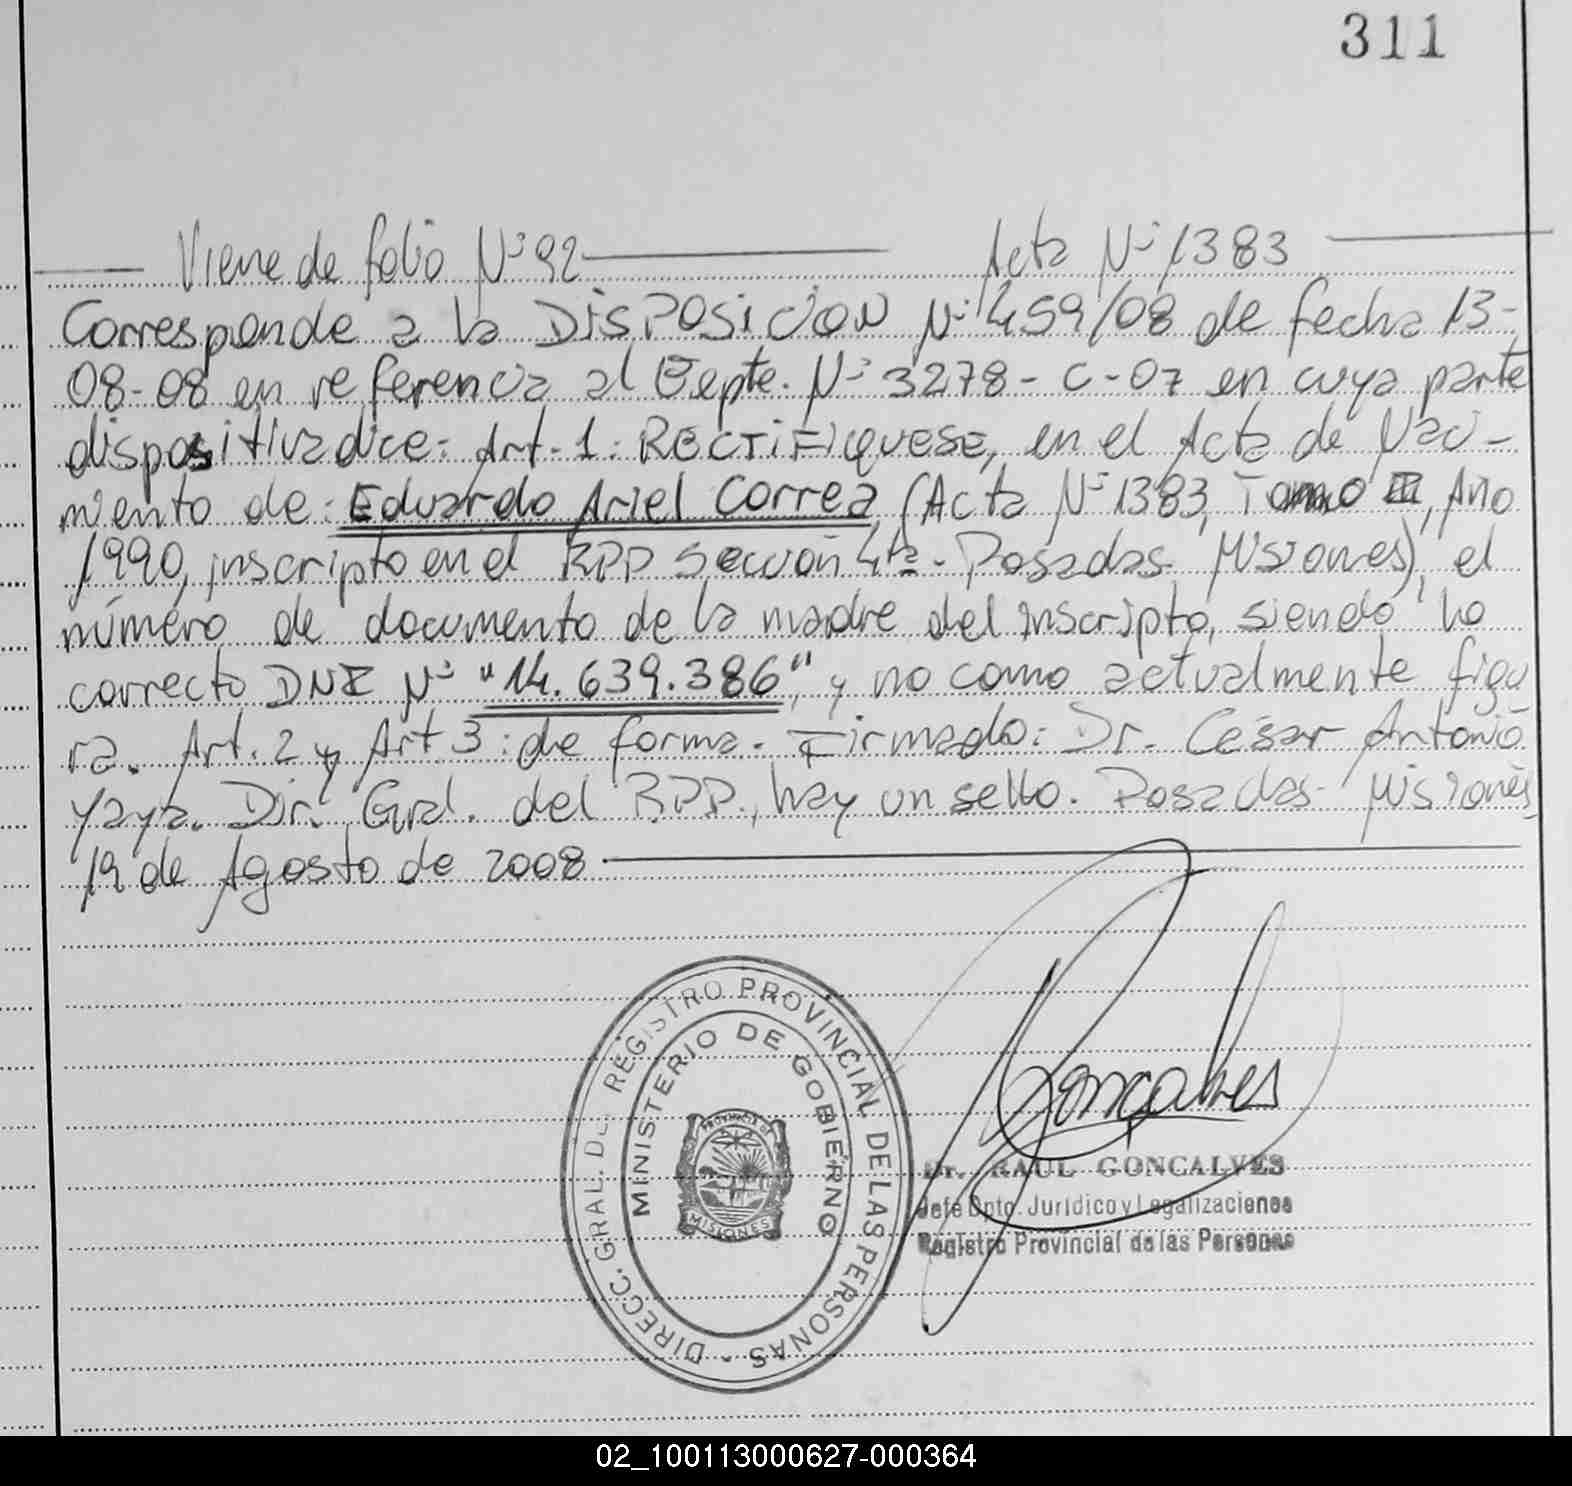 311
Viene de folio Nº 92 Acta Nº 1383
Corresponde a la DISPOSICION Nº 459/08 de fecha 13-
08-08 en referencia al Expte. Nº 3278-C-07 en cuya parte
dispositiva dice: Art. 1: RECTIFIQUESE, en el Acta de Naci-
miento de: Eduardo Ariel Correa (Acta Nº 1383, Tomo III, Año
1990, inscripto en el RPP Sección 4ta - Posadas Misiones), el
número de documento de la madre del inscripto, siendo lo
correcto DNI Nº "14.639.386", y no como actualmente figu
ra. Art. 2 y Art 3: de forma. Firmado: Dr. César Antonio
Yaya. Dir. Gral. del RPP., hay un sello. Posadas- Misiones
19 de Agosto de 2008
DIRECC. GRAL. DE REGISTRO PROVINCIAL DE LAS PERSONAS -
MINISTERIO DE GOBIERNO
PROVINCIA DE
MISIONES
Gonçalves
Dr. RAUL GONCALVES
Jefe Dpto. Jurídico y Legalizaciones
Registro Provincial de las Personas
02_100113000627-000364